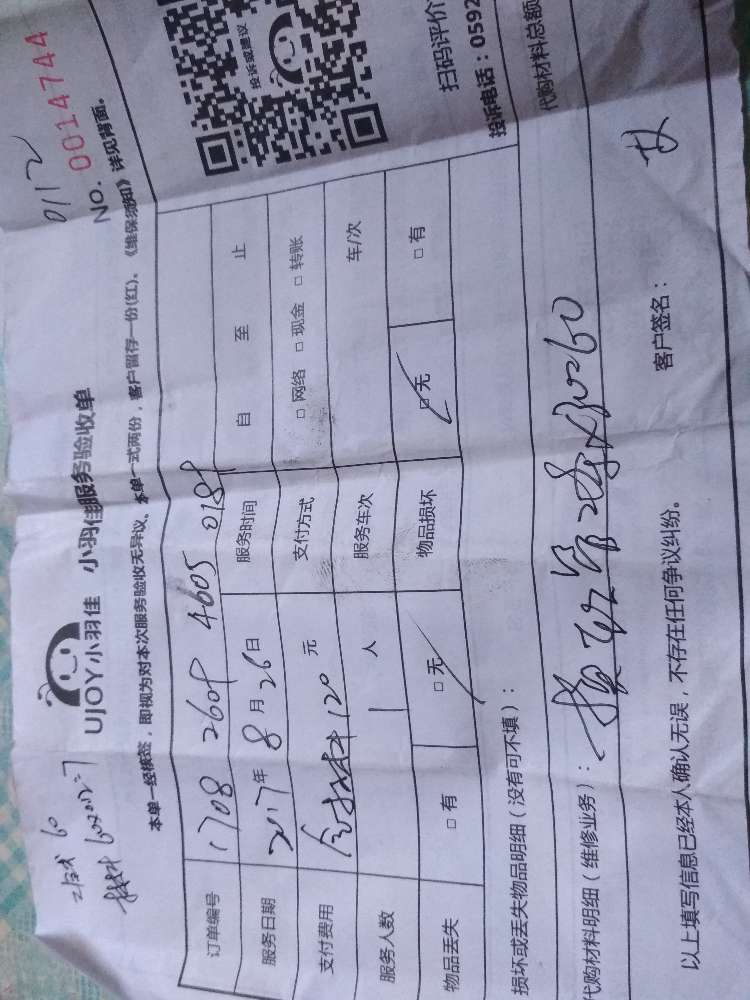 0112
NO. 0014744
投诉或建议
UJOY小羽佳 小羽佳服务验收单
本单一经核签，即视为对本次服务验收无异议。本单一式两份，客户留存一份(红)、《维保须知》详见背面。
工时 60
材料
订单编号 1708 2609 4605 018
服务日期 2017年8月26日 服务时间 自 至 止
支付费用 含材料120元 支付方式 □ 网络 □ 现金 □ 转账
服务人数 1 人 服务车次 车/次
物品丢失 □ 有 □ 无 物品损坏 □ 无 □ 有
扫码评价
投诉电话：0592
损坏或丢失物品明细（没有可不填）：
代购材料明细（维修业务）：
代购材料总额
以上填写信息已经本人确认无误，不存在任何争议纠纷。
客户签名：